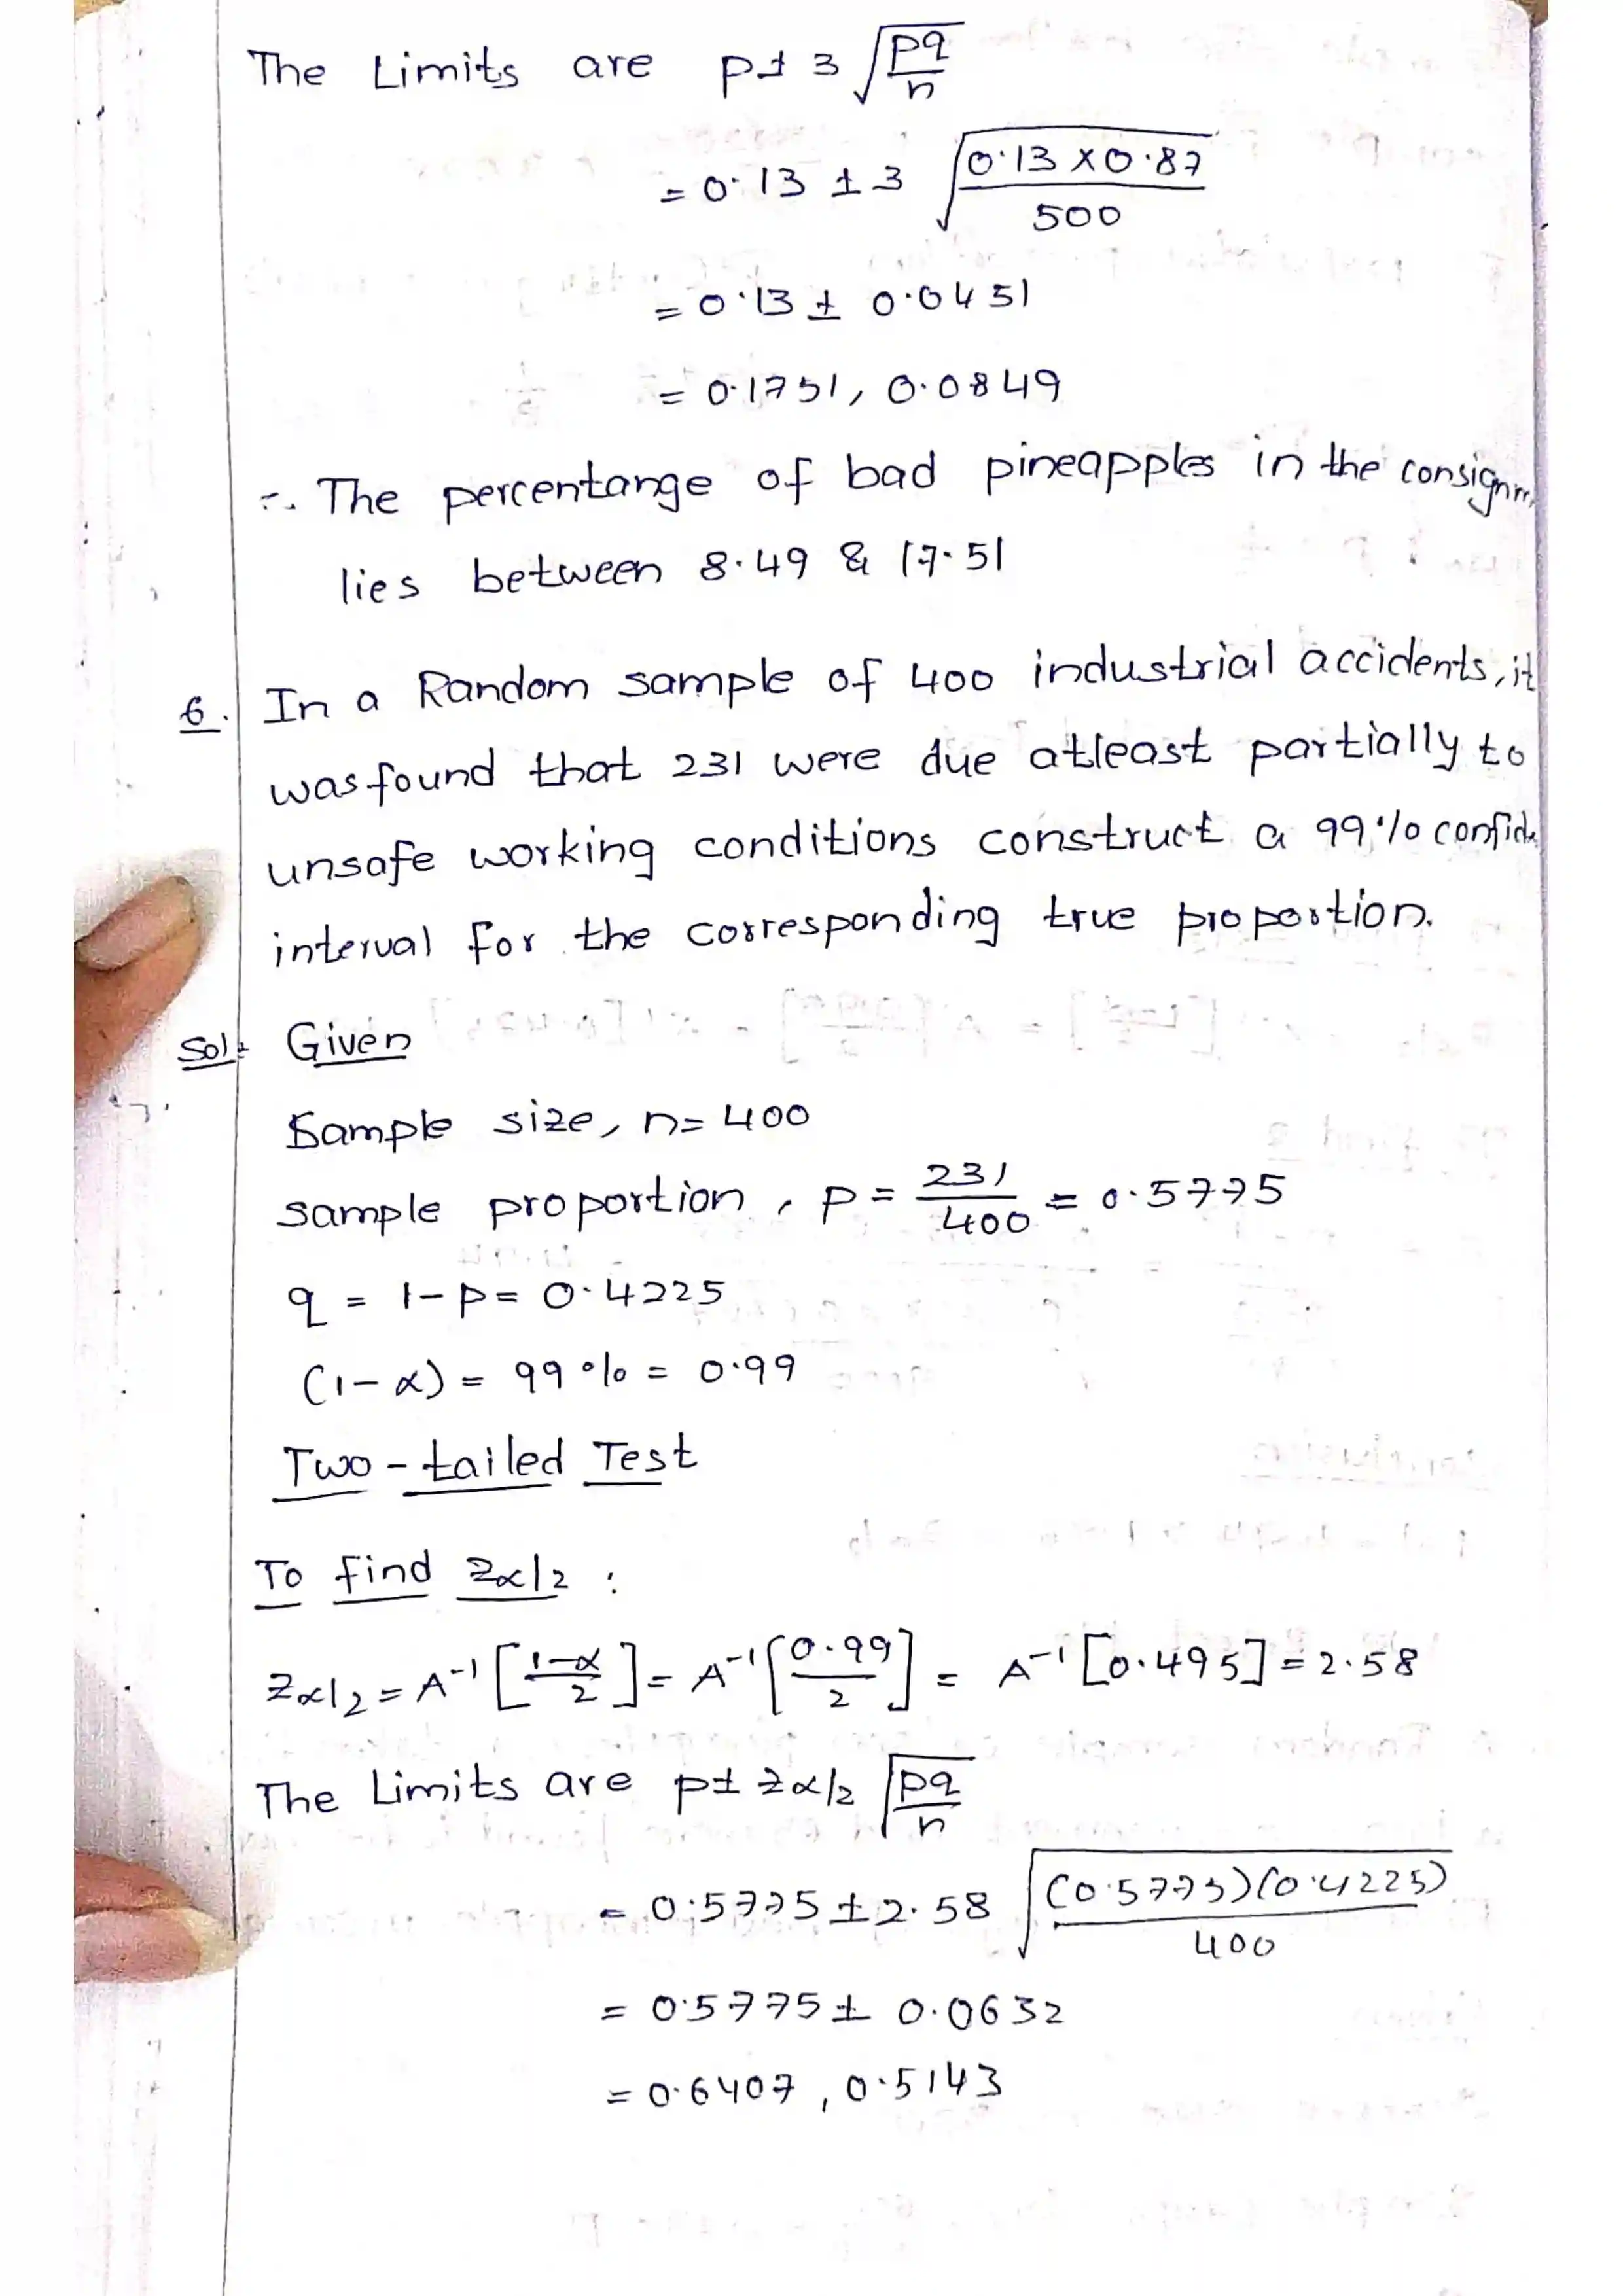 The Limits are p ± 3 √(pq/n)
= 0.13 ± 3 √(0.13 × 0.87 / 500)
= 0.13 ± 0.0451
= 0.1751, 0.0849
∴ The percentange of bad pineapples in the consignm
lies between 8.49 & 17.51
6. In a Random sample of 400 industrial accidents, it
was found that 231 were due atleast partially to
unsafe working conditions construct a 99% confide
interval for the corresponding true proportion.
Sol: Given
Sample size, n = 400
sample proportion, p = 231/400 = 0.5775
q = 1 - p = 0.4225
(1 - α) = 99% = 0.99
Two - tailed Test
To find Zα/2 :
Zα/2 = A⁻¹ [1-α/2] = A⁻¹ [0.99/2] = A⁻¹ [0.495] = 2.58
The Limits are p ± Zα/2 √(pq/n)
= 0.5775 ± 2.58 √((0.5775)(0.4225)/400)
= 0.5775 ± 0.0632
= 0.6407, 0.5143